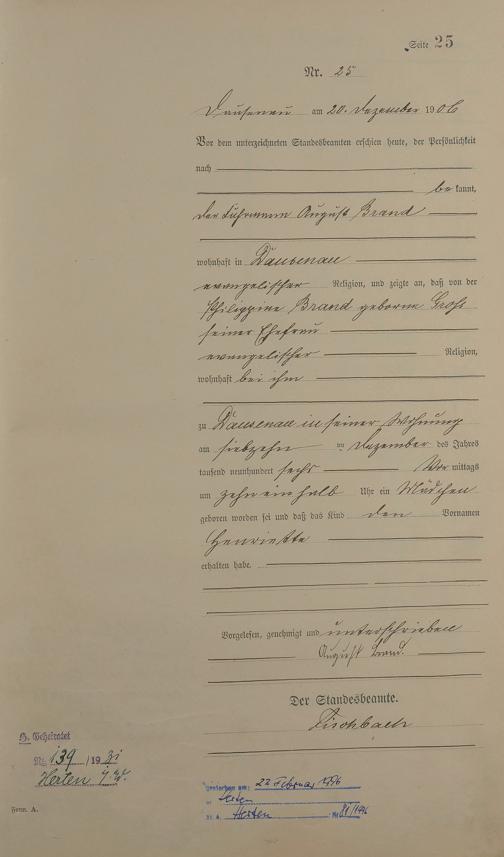 Seite 25
Nr. 25
Dausenau am 20. Dezember 1906
Vor dem unterzeichneten Standesbeamten erschien heute, der Persönlichkeit
nach
be kannt,
der Fuhrmann August Brand
wohnhaft in Dausenau
evangelischer Religion, und zeigte an, daß von der
Philippine Brand geborne Groß
seiner Ehefrau
evangelischer Religion,
wohnhaft bei ihm
zu Dausenau in seiner Wohnung
am siebzehn ten Dezember des Jahres
tausend neunhundert sechs Vor mittags
um zehn ein halb Uhr ein Mädchen
geboren worden sei und daß das Kind den Vornamen
Henriette
erhalten habe.
Vorgelesen, genehmigt und unterschrieben
August Brand.
Der Standesbeamte.
Fischbach
H. Geheiratet
Nr. 139 / 1931
Herten i. W.
Form. A.
gestorben am: 22 Februar 1996
in Herten
St. A. Herten Nr. 81/1996